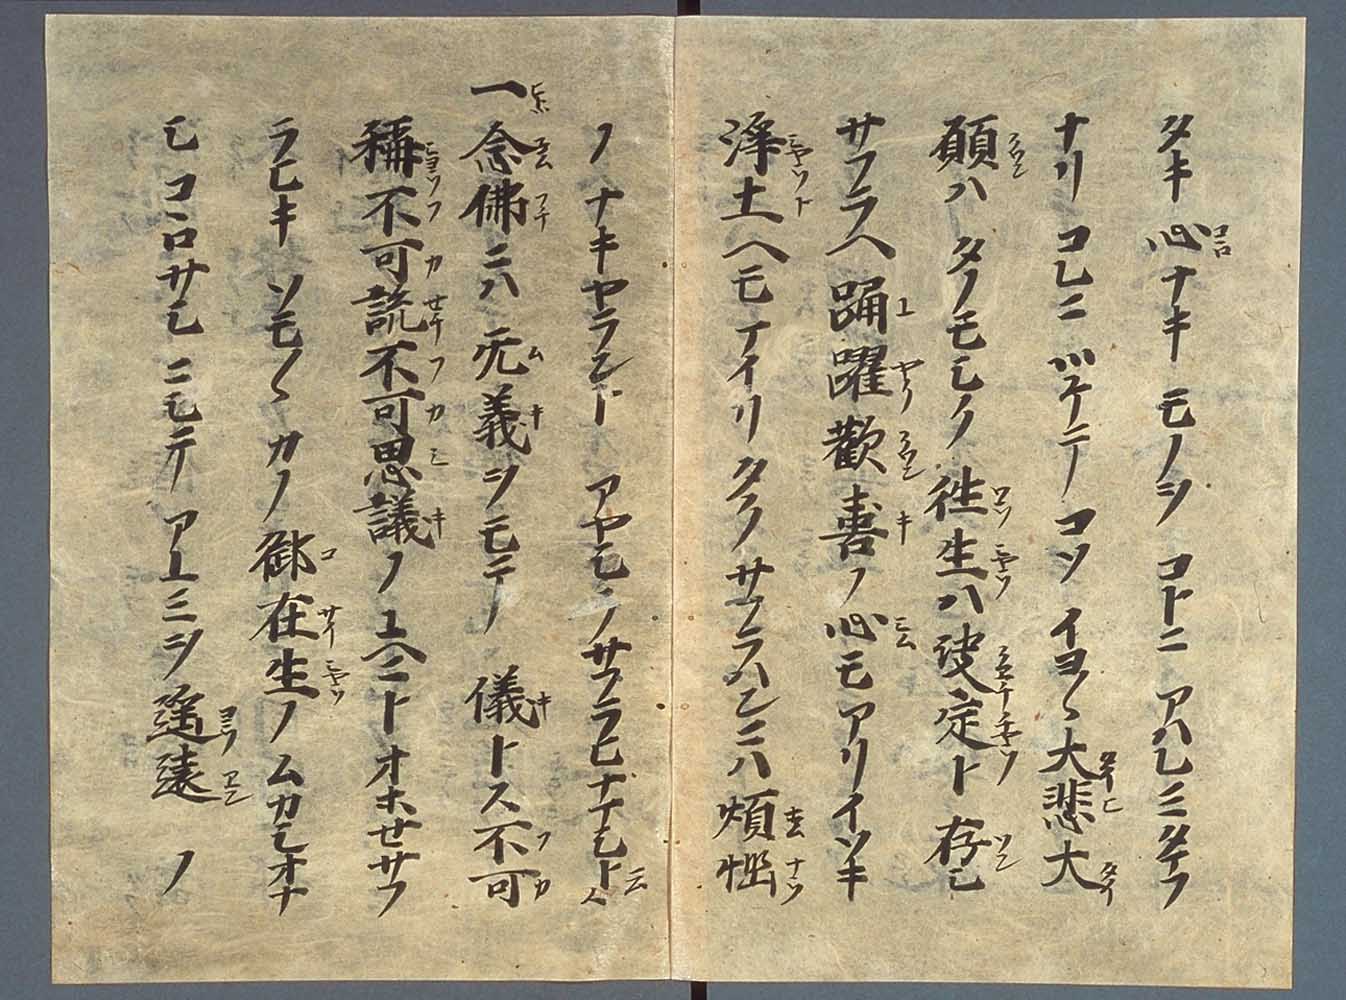 タキ心ナキモノヲコトニアハレミタマフ
ナリコレニツケテコソイヨ〱大悲大
願ハタノモシク往生ハ決定ト存シ
サフラヘ踊躍歡喜ノ心モアリイソキ
浄土ヘモマイリタクサフラハンニハ煩惱
ノナキヤラントアヤシクサフラヒナマシト云々
一念佛ニハ无義ヲモテ儀トス不可
稱不可説不可思議ノユヘニトオホセサフ
ラヒキソモ〱カノ御在生ノムカシオナ
シコヽロサシニモテアユミヲ遼遠ノ